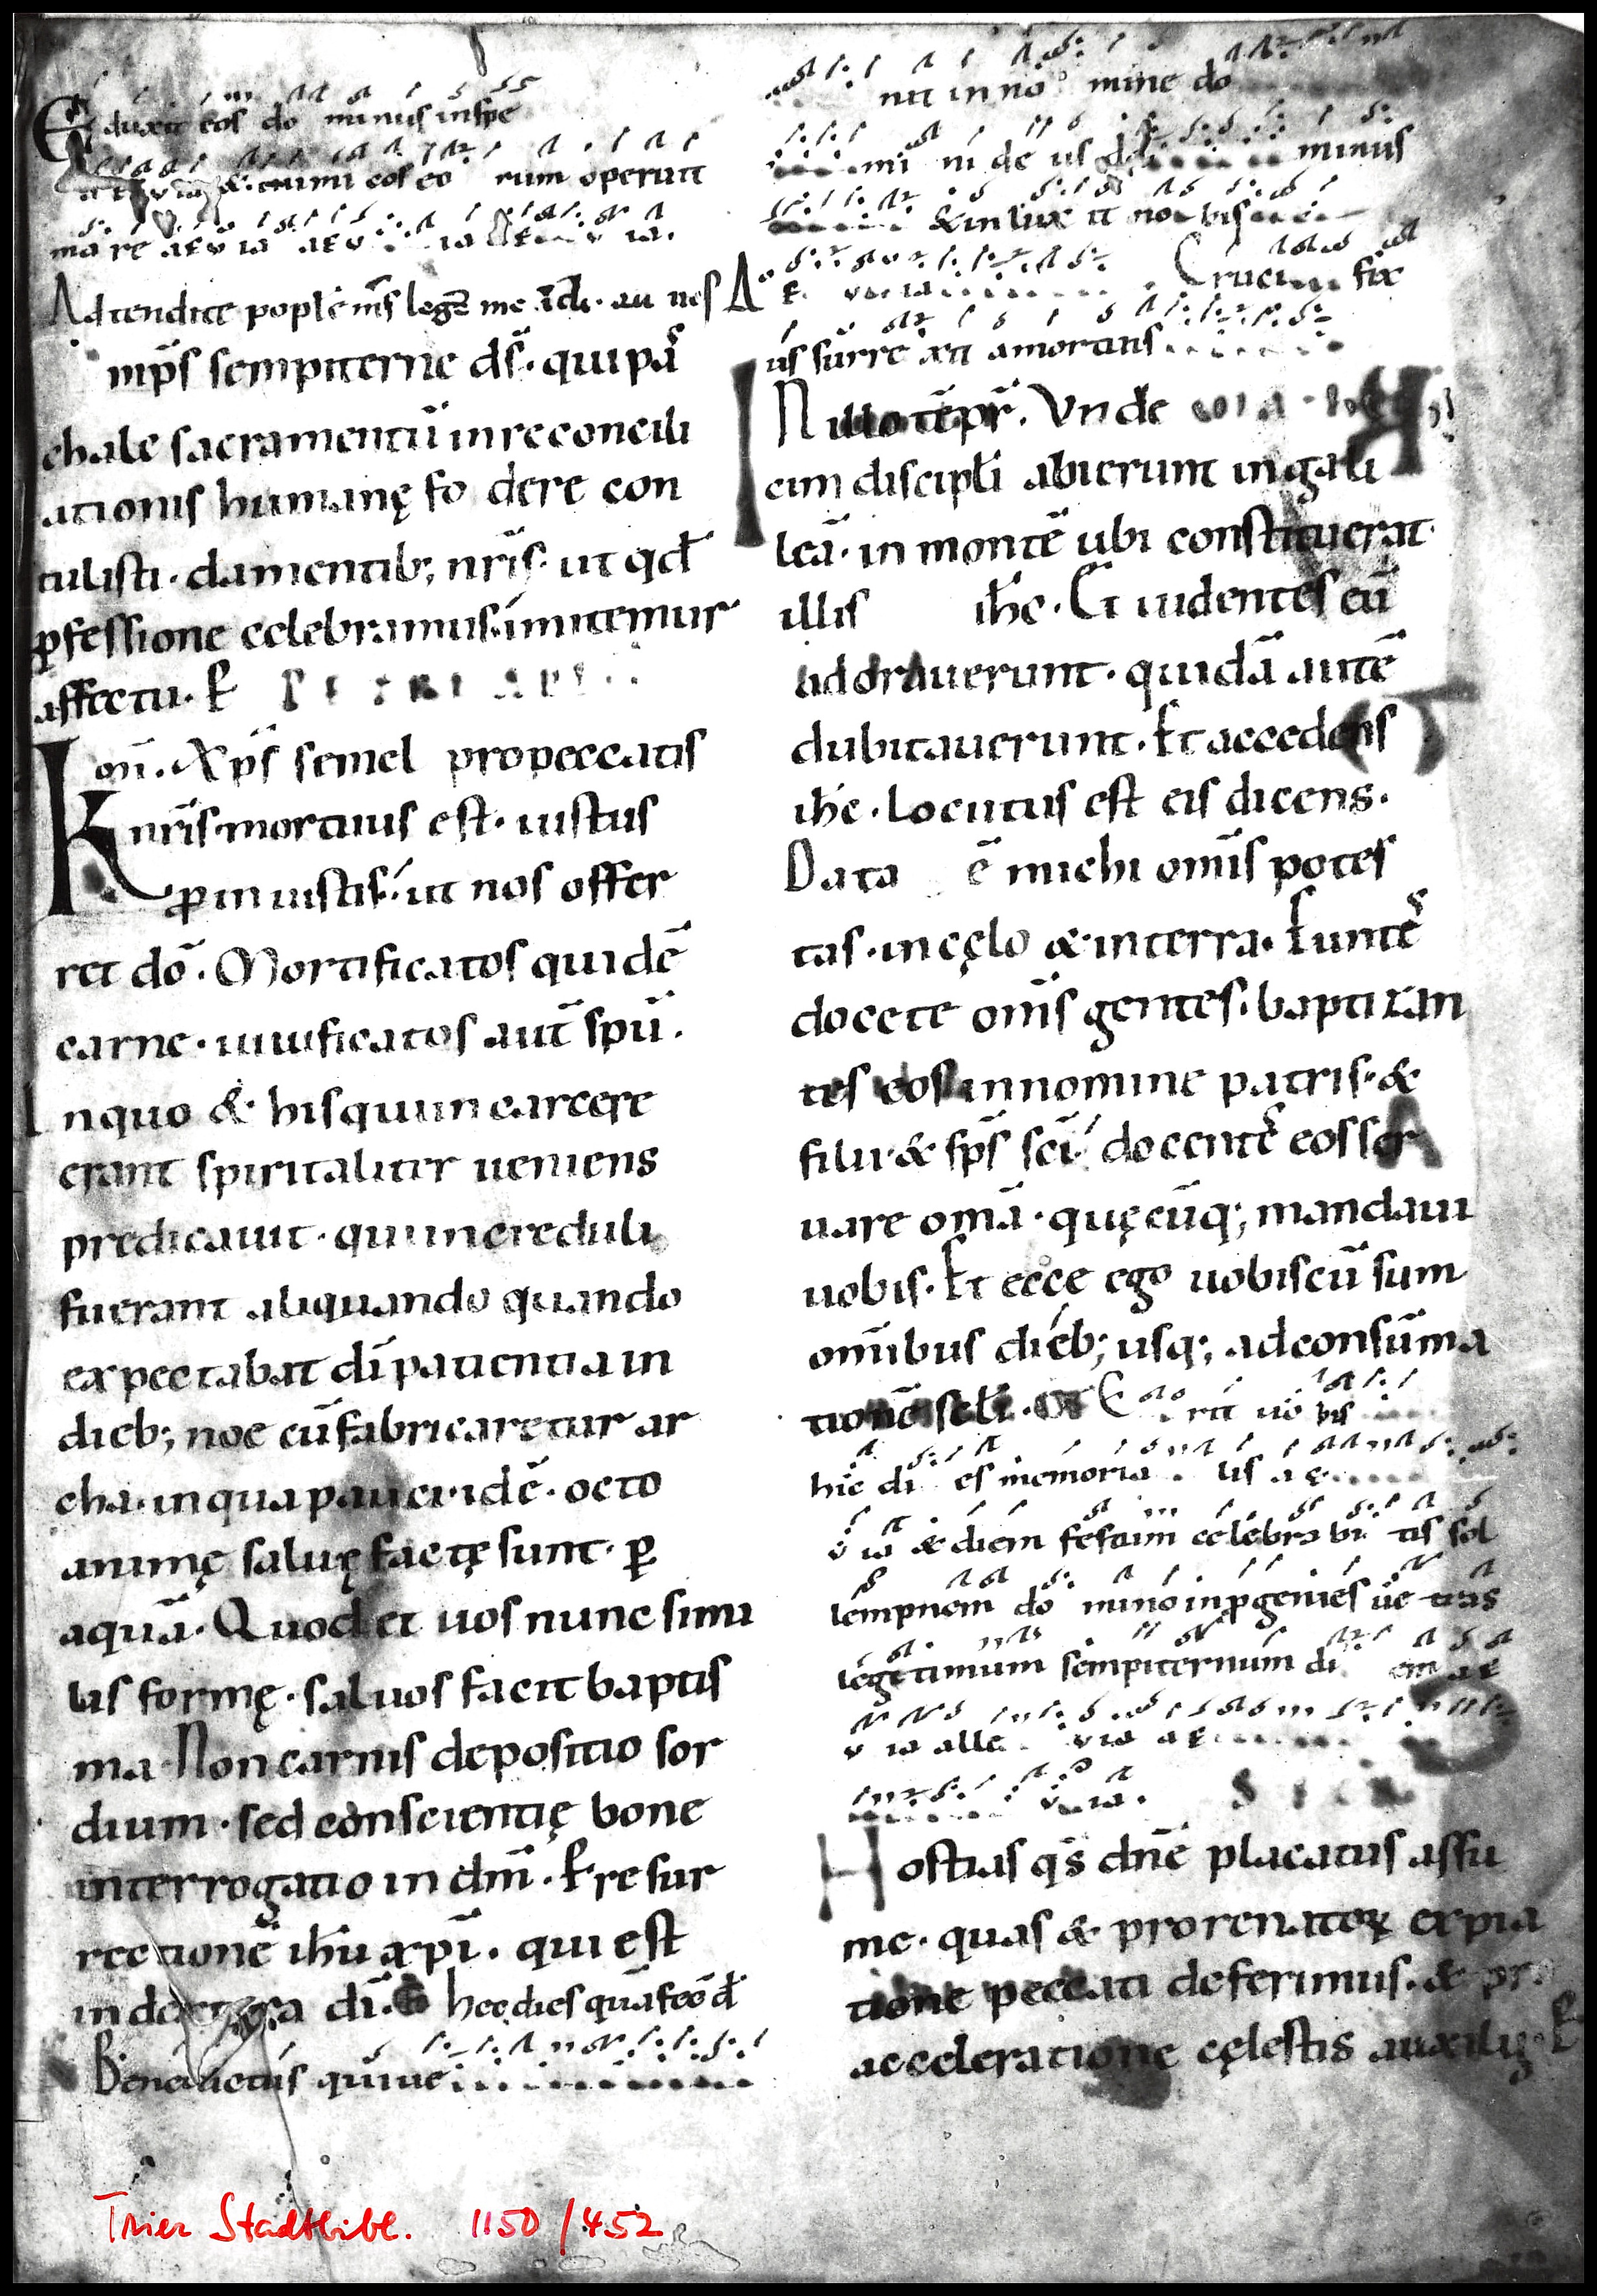 Eduxit eos do minus inspe
aeuia & inimi cos eo rum operuit
ma re aeuia aeu ia ae u ia.
Adtendite pople m̅s legē me. ID̅I. au nes
mp̅s sempiterne ds̅. qui pas
chale sacramentū inreconcili
ationis humanę fo dere con
tulisti. damentib; nr̅is. ut qd̅
ꝓfessione celebramus. imitemur
affectu. P
om̅. Xp̅s semel propeccatis
nr̅is mortuus est. iustus
ꝓ iniustis. ut nos offer
ret dō. Mortificatos quidē
carne. uiuificatos aut̅ spū.
Inquo & his qui in carcere
erant spiritaliter ueniens
predicauit. qui increduli
fuerant aliquando quando
expectabat di̅ patientia in
dieb; noe cū fabricaretur ar
cha. inqua pauci. idē. octo
animę saluę factę sunt. ꝑ
aquā. Quod et uos nunc simi
lis formę. saluos facit baptis
ma. Non carnis depositio sor
dium. sed conscientię bone
interrogatio in dm̅. P resur
rectionē ihu̅ xpi̅. qui est
in dextera di̅. G hec dies quā fec̅ d̅
Benedictus qui ue
nit in no mine do
mi ni de us ds̅ minus
& in lux it no bis
A e uia Cruci fix
us surre xit a mortuis
IN illo tēpr̅. Vnde
cim discipli̅ abierunt ingali
leā. in montē ubi constituerat
illis ihc̅. Et uidentes eū
adorauerunt. quidā autē
dubitauerunt. Et accedens
ihc̅. Locutus est eis dicens.
Data ē michi om̅is potes
tas. incęlo & interra. Euntes
docete om̅s gentes. baptizan
tes eos innomine patris. &
filii. & sp̅s sc̅i. docentes eos ser
uare om̅a. quęcūq; mandaui
uobis. Et ecce ego uobiscū sum
omnibus dieb; usq; adconsūma
tionē scl̅i. OF E rit uo bis
hic di es memoria lis ae
u ia & diem festum celebra bi tis sol
lempnem do mino inꝓgenies ue tras
legitimum sempiternum di em ae
u ia alle uia ae
u ia. S
Hostias qs̅ dn̅e placatus assu
me. quas & pro renatoꝝ expia
tione peccati deferimus. & pr̅.
acceleratione cęlestis auxilii. P
Trier Stadtbibl. 1150/452